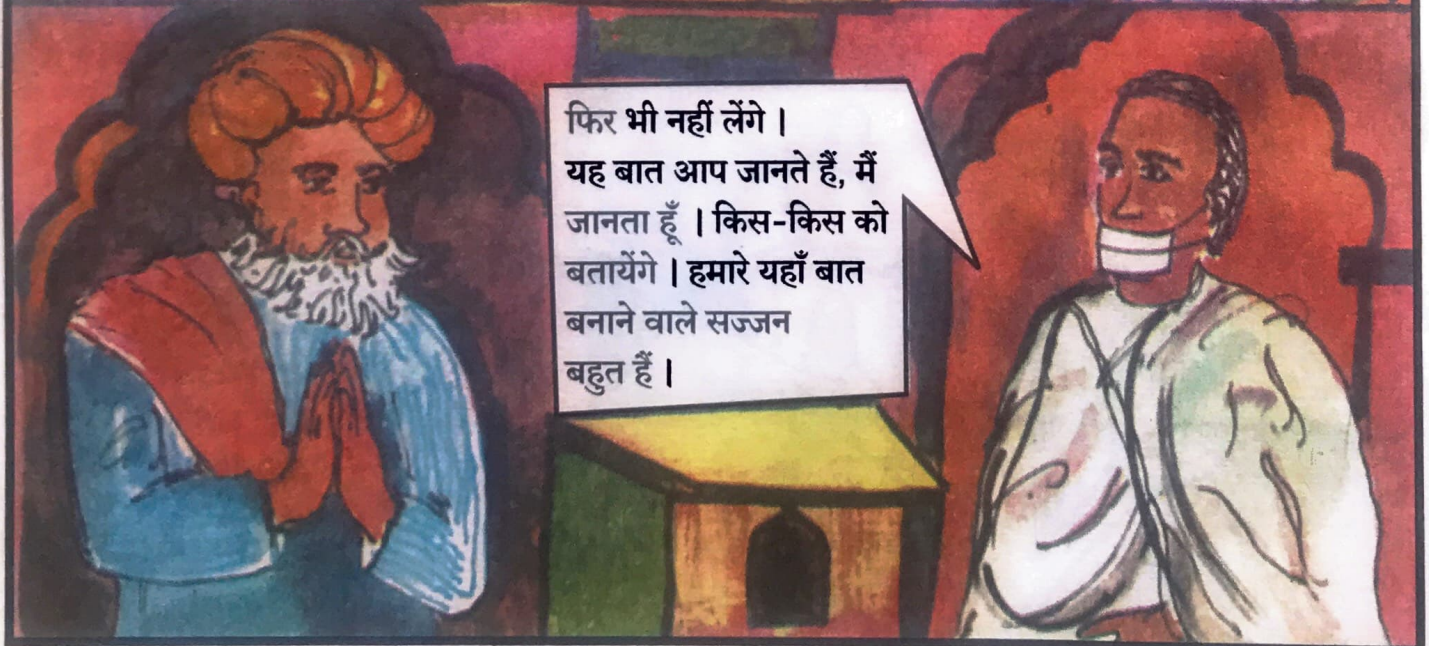 फिर भी नहीं लेंगे ।
यह बात आप जानते हैं, मैं
जानता हूँ । किस-किस को
बतायेंगे । हमारे यहाँ बात
बनाने वाले सज्जन
बहुत हैं ।